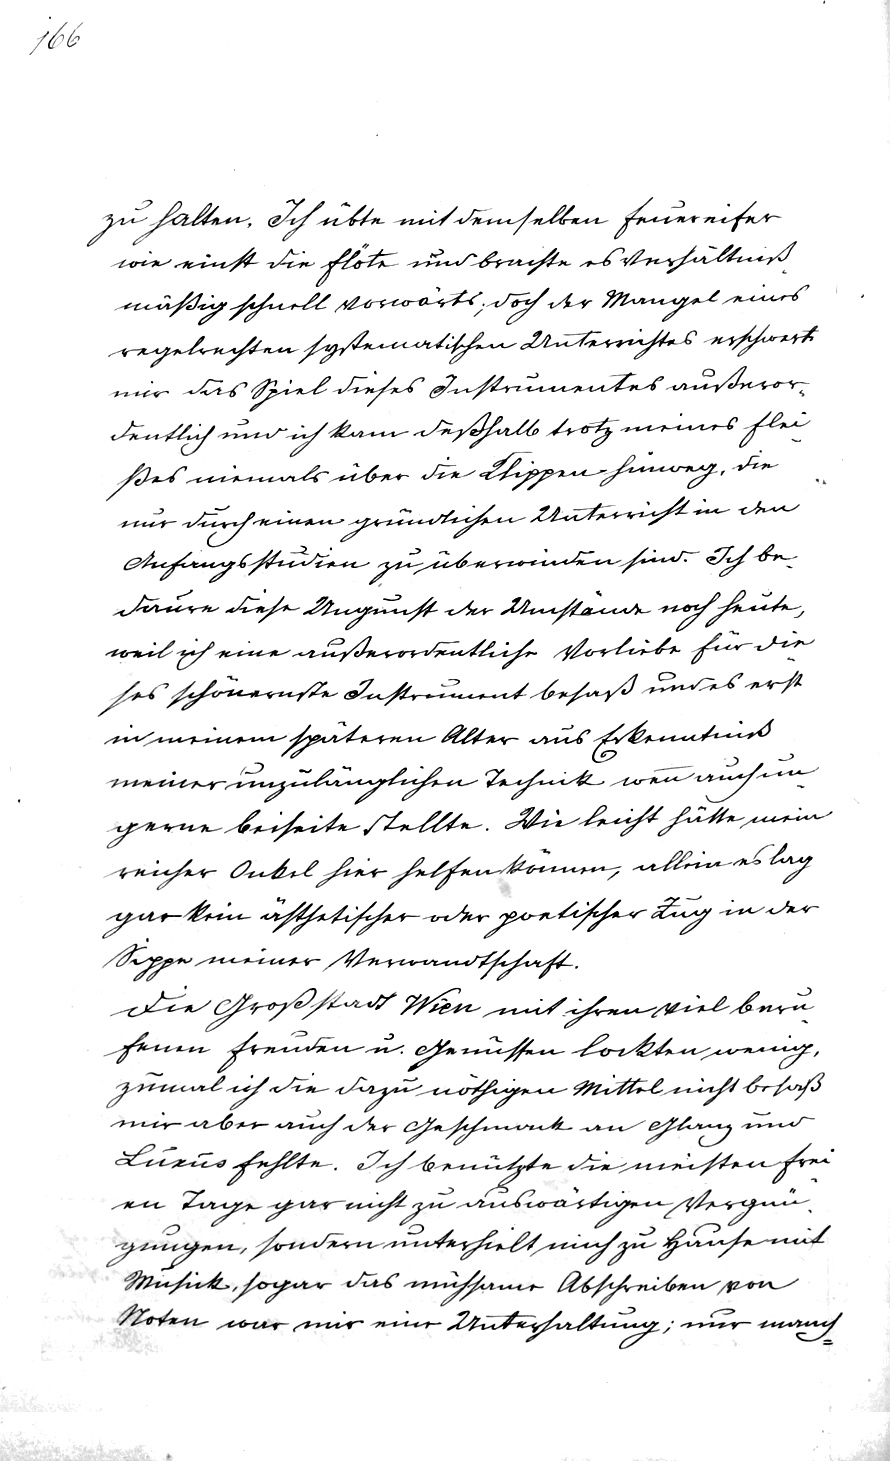 166
zu halten. Ich übte mit demselben Feuereifer
wie einst die Flöte und brachte es verhältniß-
mäßig schnell vorwärts; doch der Mangel eines
regelrechten systematischen Unterrichtes erschwerte
mir das Spiel dieses Instrumentes außeror-
dentlich und ich kam deßhalb trotz meines Flei-
ßes niemals über die Klippen hinweg, die
nur durch einen gründlichen Unterricht in den
Anfangsstudien zu überwinden sind. Ich be-
daure diese Ungunst der Umstände noch heute,
weil ich eine außerordentliche Vorliebe für die-
ses schönernste Instrument besaß und es erst
in meinem späteren Alter aus Erkenntniß
meiner unzulänglichen Technik weñ auch un-
gerne beiseite stellte. Wie leicht hätte mein
reicher Onkel hier helfen können, allein es lag
gar kein ästhetischer oder poetischer Zug in der
Sippe meiner Verwandtschaft.
Die Großstadt Wien mit ihren viel beru-
fenen Freuden u. Genüssen lockten wenig,
zumal ich die dazu nöthigen Mittel nicht besaß
mir aber auch der Geschmack an Glanz und
Luxus fehlte. Ich benützte die meisten frei-
en Tage gar nicht zu auswärtigen Vergnü-
gungen, sondern unterhielt mich zu Hause mit
Musick, sogar das mühsame Abschreiben von
Noten war mir eine Unterhaltung; nur manch=